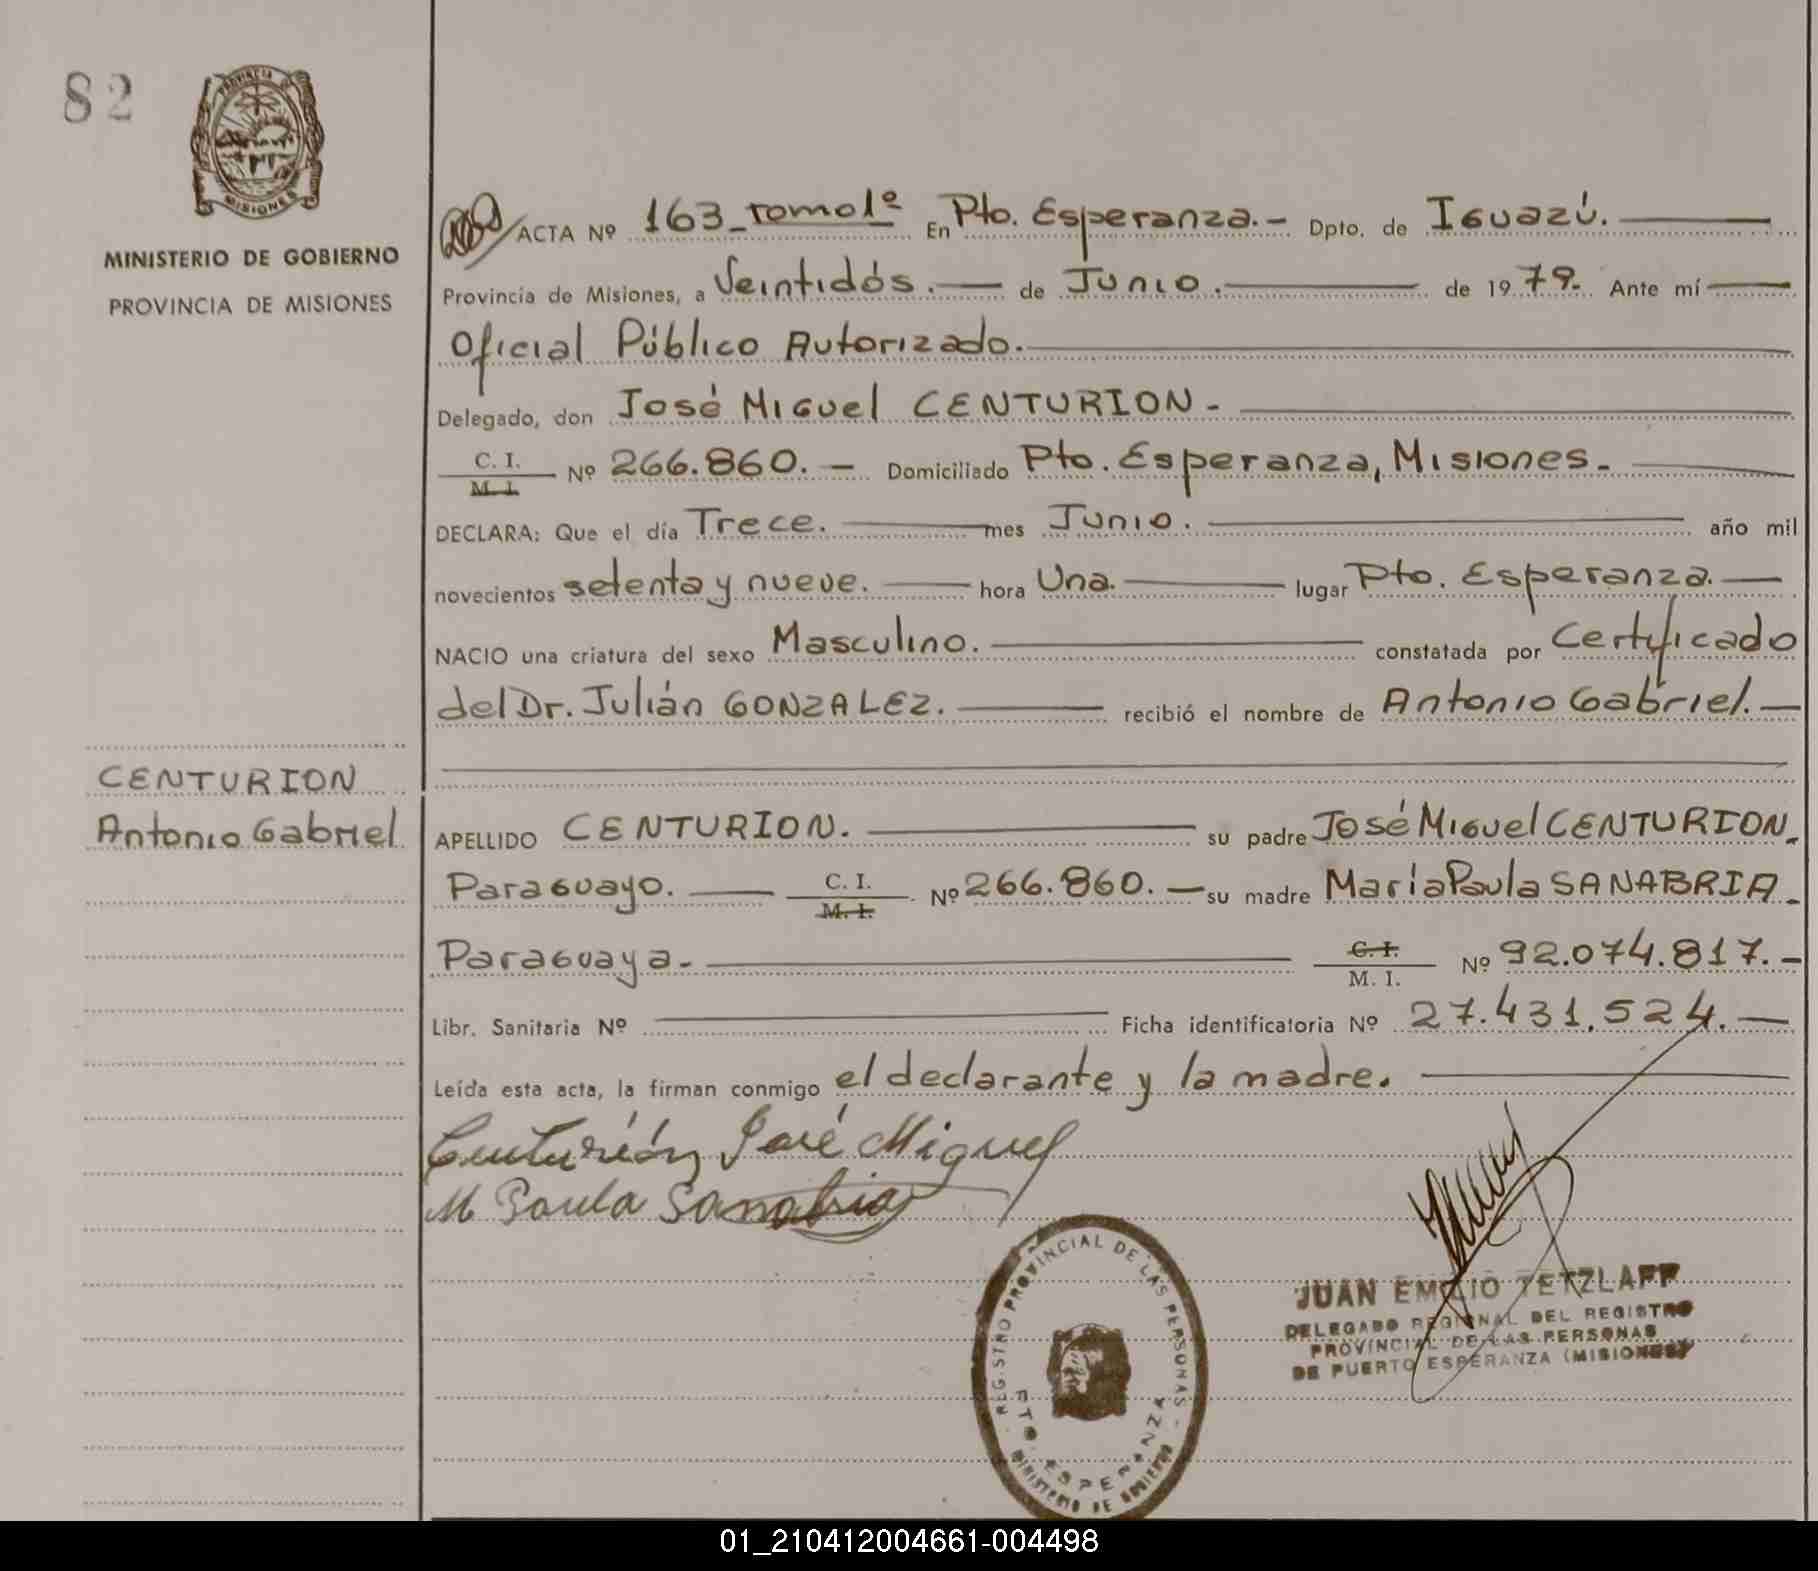 82
PROVINCIA
MISIONES
MINISTERIO DE GOBIERNO
PROVINCIA DE MISIONES
ACTA Nº 163_tomo1º En Pto. Esperanza.- Dpto. de Iguazú.
Provincia de Misiones, a Veintidós. de Junio. de 1979. Ante mí
Oficial Público Autorizado.
Delegado, don José Miguel CENTURION-
C. I. M. I. Nº 266.860.- Domiciliado Pto. Esperanza, Misiones.
DECLARA: Que el día Trece. mes Junio. año mil
novecientos setenta y nueve. hora Una. lugar Pto. Esperanza.
NACIO una criatura del sexo Masculino. constatada por Certificado
del Dr. Julián GONZALEZ. recibió el nombre de Antonio Gabriel.
CENTURION
Antonio Gabriel
APELLIDO CENTURION. su padre José Miguel CENTURION.
Paraguayo. C. I. M. I. Nº 266.860.- su madre María Paula SANABRIA.
Paraguaya. C. I. M. I. Nº 92.074.817.-
Libr. Sanitaria Nº Ficha identificatoria Nº 27.431.524.
Leída esta acta, la firman conmigo el declarante y la madre.
Centurión José Miguel
M Paula Sanabria
REGISTRO PROVINCIAL DE LAS PERSONAS
PTO. ESPERANZA
MINISTERIO DE GOBIERNO
JUAN EMILIO TETZLAFF
DELEGADO REGIONAL DEL REGISTRO
PROVINCIAL DE LAS PERSONAS
DE PUERTO ESPERANZA (MISIONES)
01_210412004661-004498